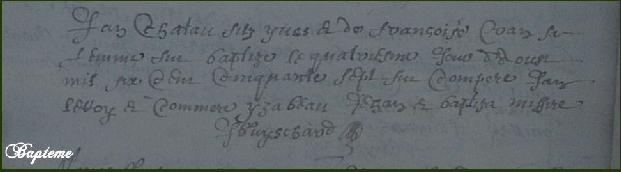 Jan Chatau filz yves et de francoise Evan sa
femme fut baptize le quatriesme Jour d'Aoust
mil six Cent Cinquante sept fut Compere Jan
leroy et Commere yzabeau Jhan et baptiza missire
Baptême